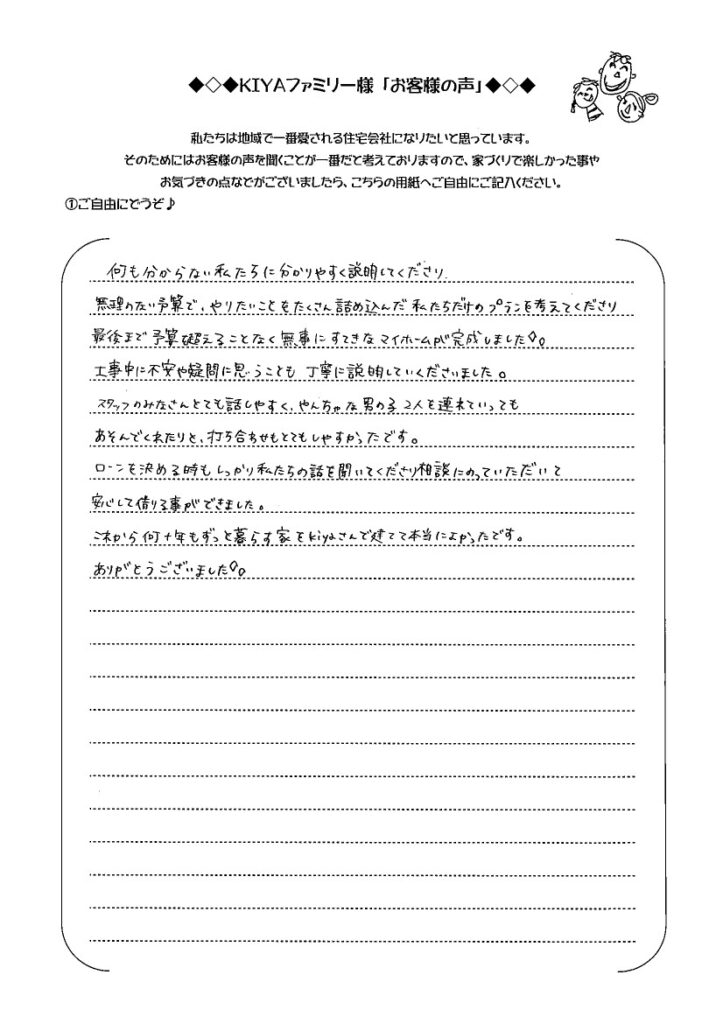 ◆◇◆KIYAファミリー様「お客様の声」◆◇◆
私たちは地域で一番愛される住宅会社になりたいと思っています。
そのためにはお客様の声を聞くことが一番だと考えておりますので、家づくりで楽しかった事や
お気づきの点などがございましたら、こちらの用紙へご自由にご記入ください。
①ご自由にどうぞ♪
何も分からない私たちに分かりやすく説明してくださり
無理のない予算で、やりたいこともたくさん詰め込んだ私たちだけのプランを考えてくださり
最後まで予算超えることなく無事にすてきなマイホームが完成しました。
工事中に不安や疑問に思うことも丁寧に説明していくださいました。
スタッフのみなさんとても話しやすく、やんちゃな男の子2人を連れていっても
あそんでくれたりと、打ち合わせもとてもしやすかったです。
ローンを決める時もしっかり私たちの話を聞いてくださり相談にのっていただいて
安心して借りる事ができました。
これから何十年もずっと暮らす家をkiyaさんで建てて本当によかったです。
ありがとうございました。